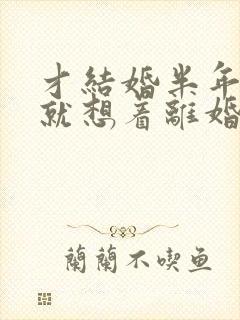 才結婚半年
就想着離婚
蘭蘭不喫魚